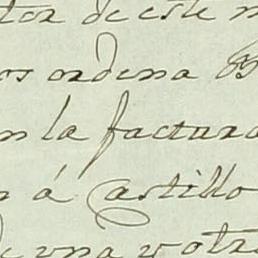 tor de este
os ordena
n la factura
á Castillo
de una y otra